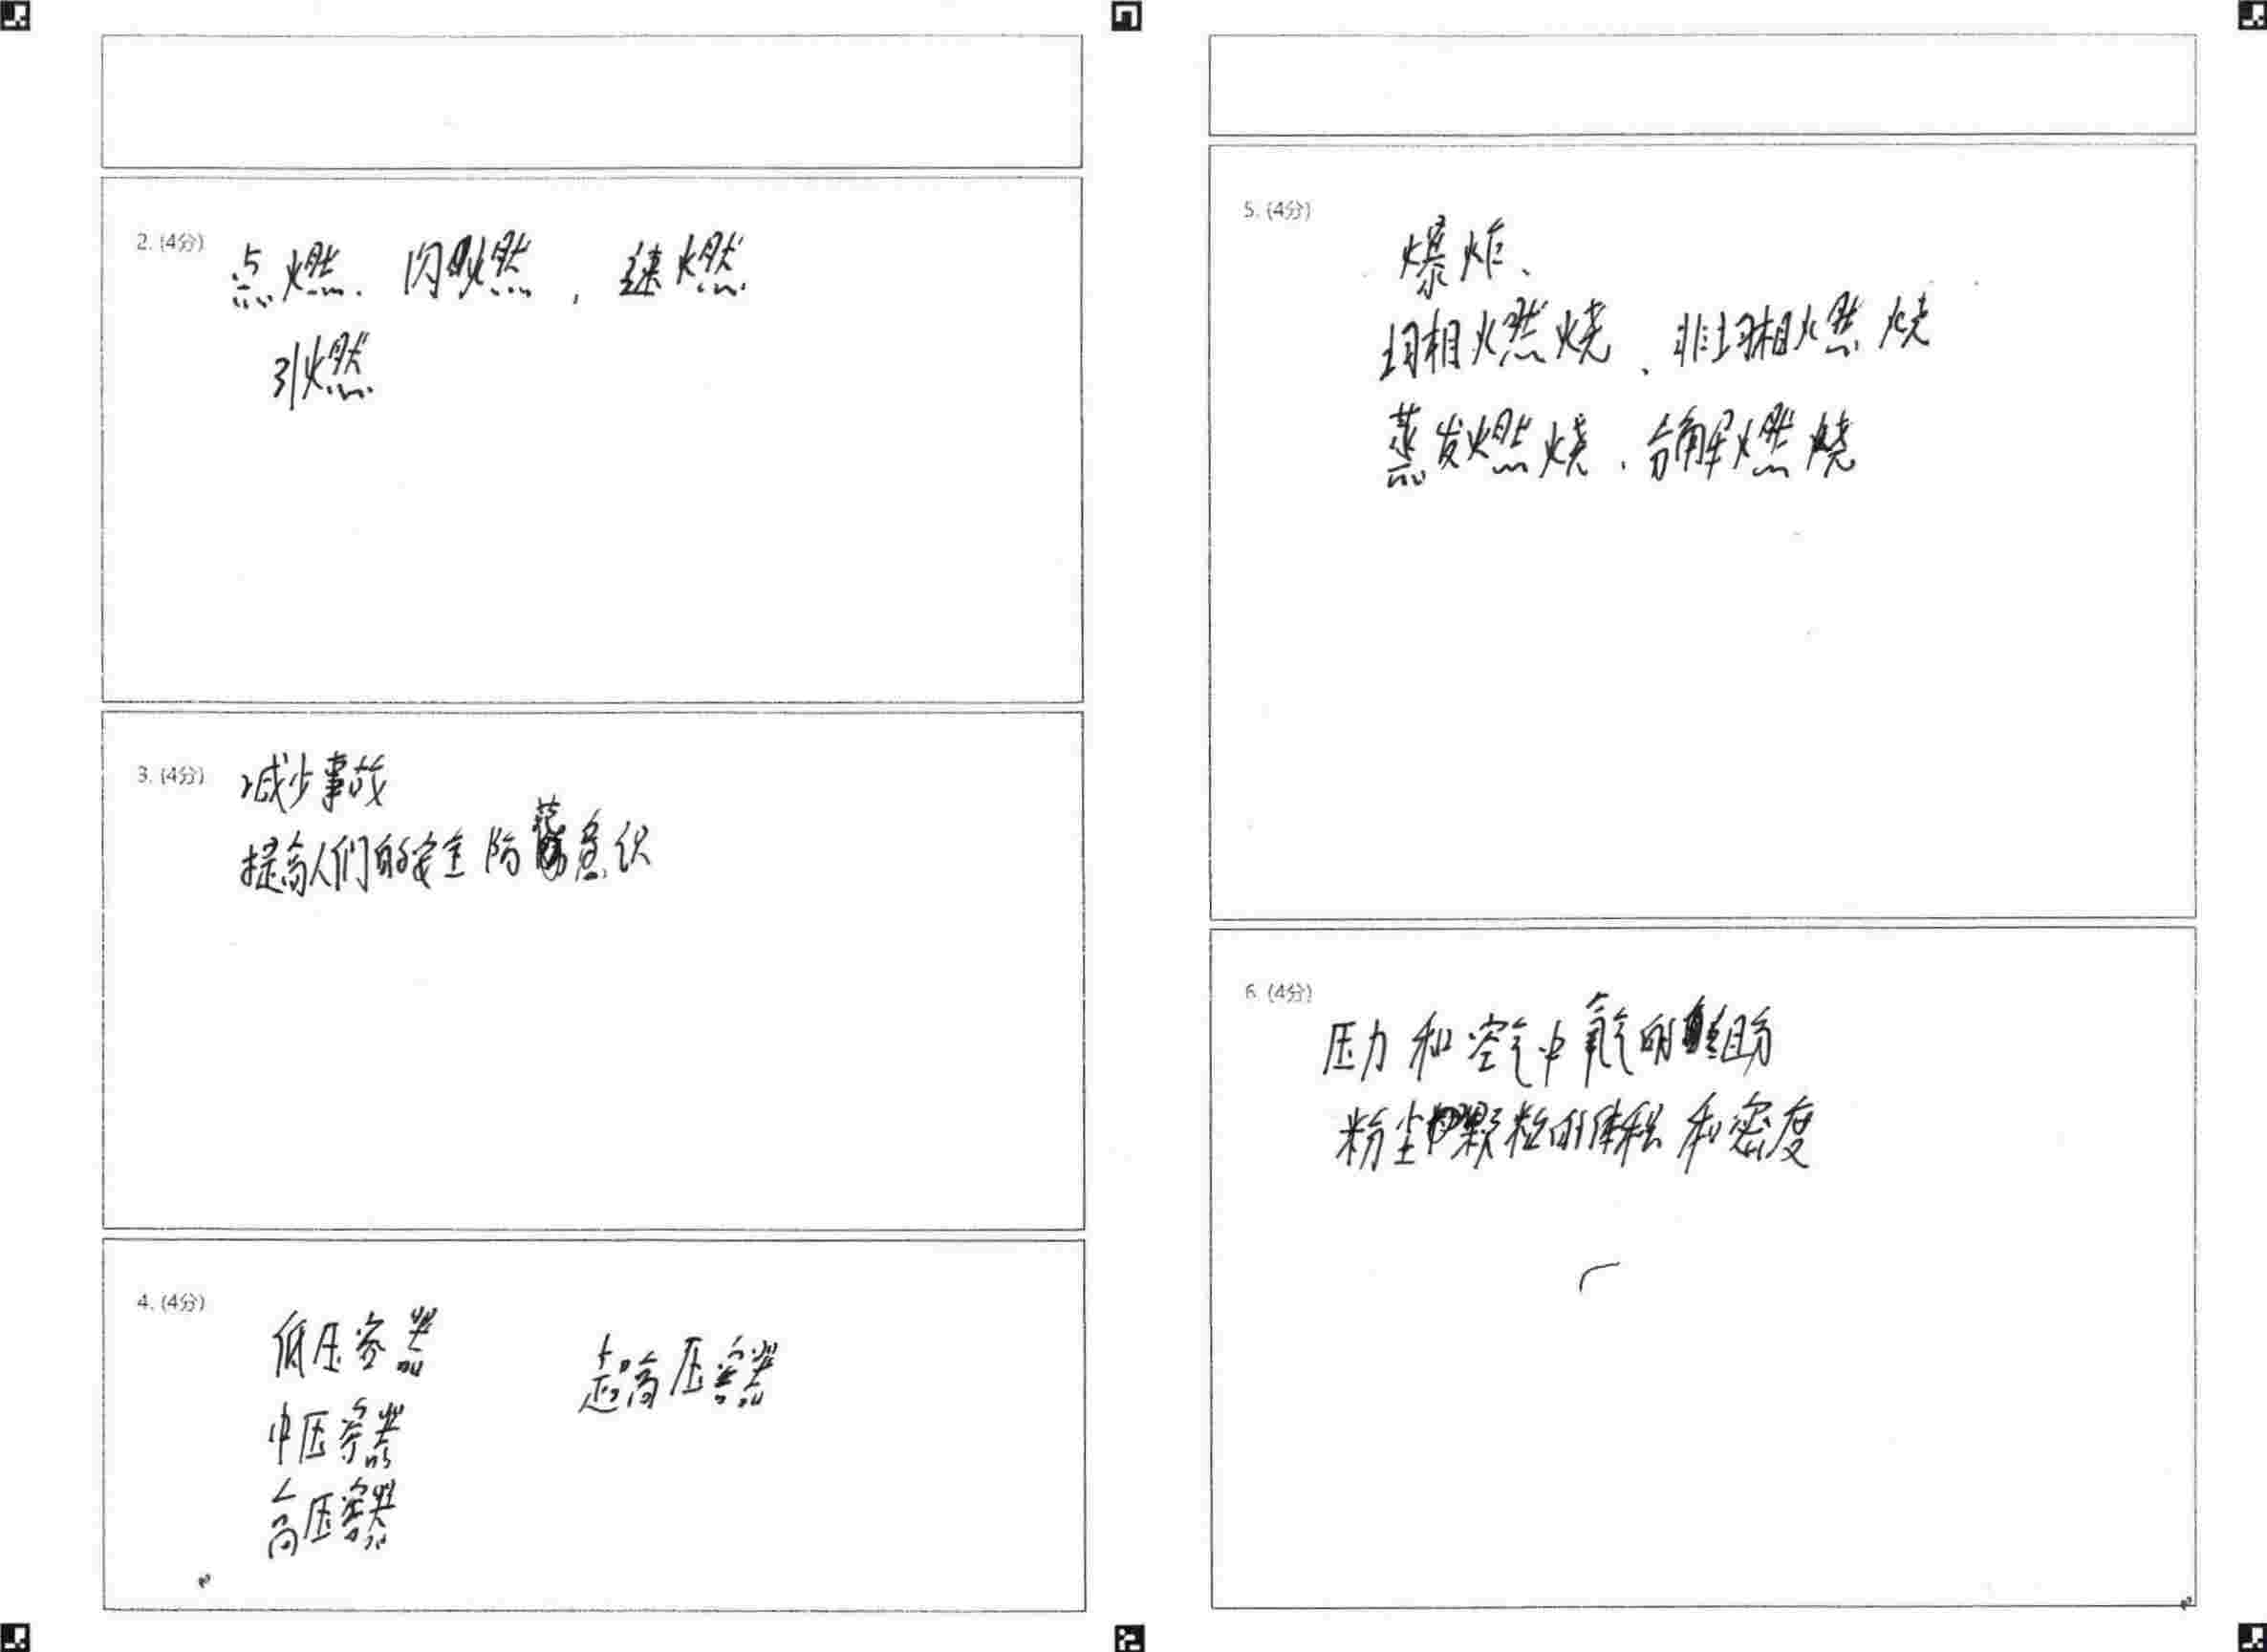 2. (4分) 点燃、闪燃，速燃
引燃
3. (4分) 减少事故
提高人们的安全防范意识
4. (4分)
低压容器
超高压容器
中压容器
高压容器
5. (4分)
爆炸、
均相燃烧、非均相燃烧
蒸发燃烧、分解燃烧
6. (4分)
压力和空气中氧气的组分
粉尘颗粒的体积和密度